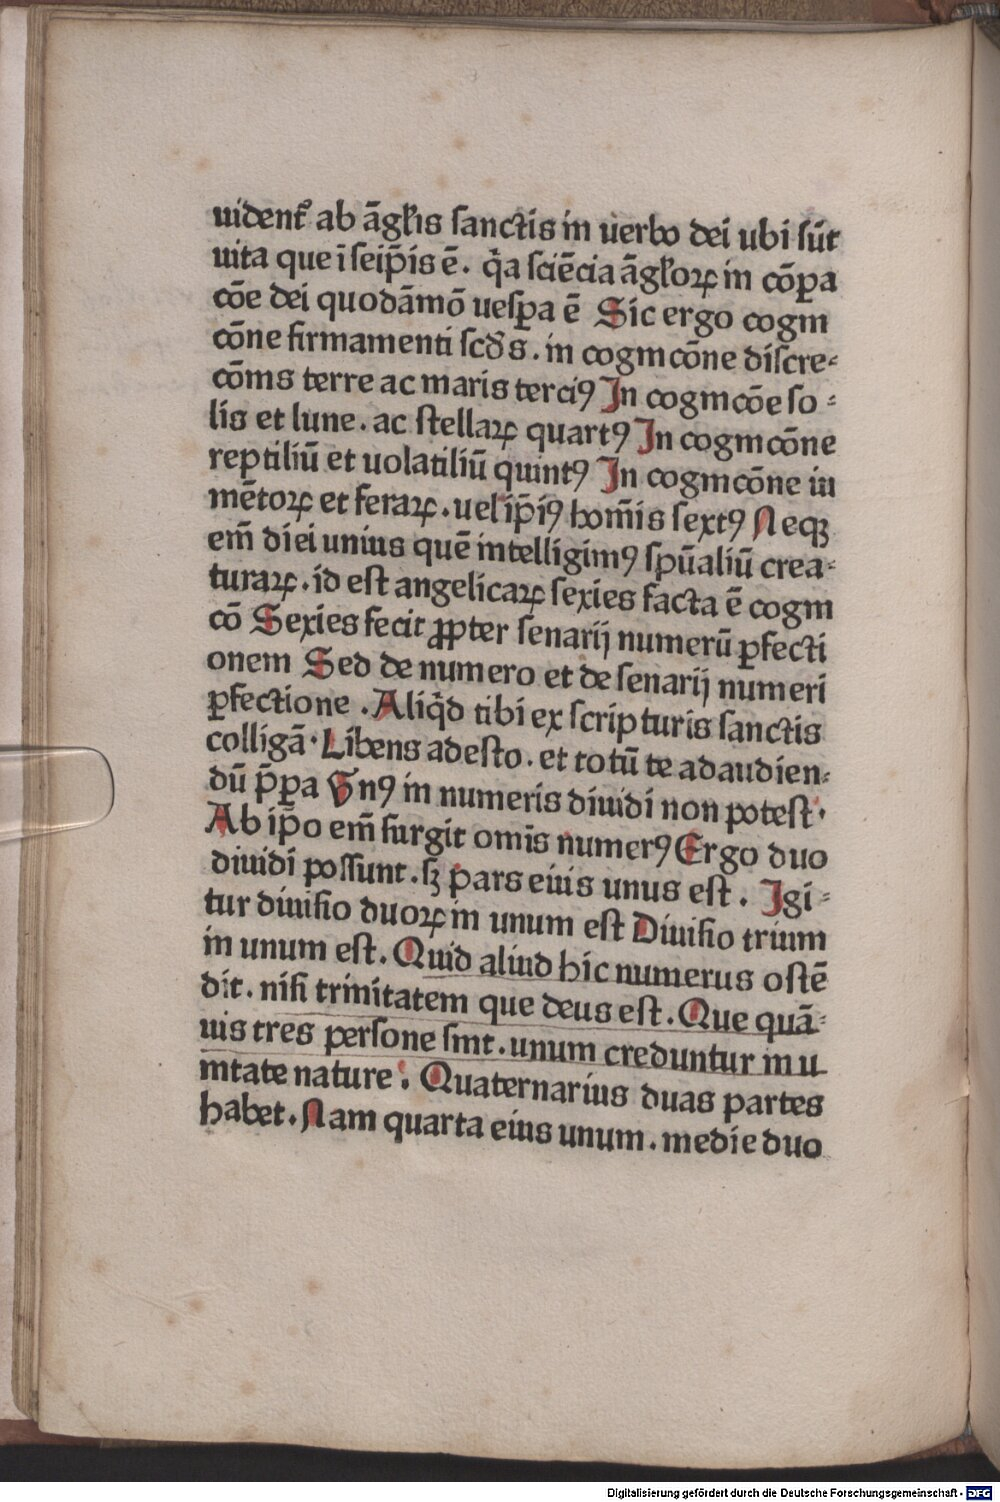 uident᷑ ab ãgl̃is sanctis in uerbo dei ubi sũt
uita que ĩ seip̃is ẽ. q̃a sciẽcia ãgl̃oꝝ in cõꝑa
cõe dei quodãmõ uesꝑa ẽ Sic ergo cogni
cõne firmamenti scd̃s. in cognicõne discre⸗
cõnis terre ac maris terciꝰ In cognicõe so⸗
lis et lune. ac stellaꝝ quartꝰ In cognicõne
reptiliũ et uolatiliũ quintꝰ In cognicõne iu
mẽtoꝝ et feraꝝ. uel ip̃iꝰ hom̃is sextꝰ Neqꝫ
em̃ diei unius quẽ intelligimꝰ sp̃ualiũ crea⸗
turaꝝ. id est angelicaꝝ sexies facta ẽ cogni
cõ Sexies fecit ꝓpter senarij numerũ ꝑfecti
onem Sed de numero et de senarij numeri
ꝑfectione. Aliq̃d tibi ex scripturis sanctis
colligã. Libens adesto. et totũ te ad audien⸗
dũ p̃ꝑa Vnꝰ in numeris diuidi non potest.
Ab ip̃o em̃ surgit omĩs numerꝰ Ergo duo
diuidi possunt. sꝫ pars eius unus est. Igi⸗
tur diuisio duoꝝ in unum est Diuisio trium
in unum est. Quid aliud hic numerus ostẽ
dit. nisi trinitatem que deus est. Que quã⸗
uis tres persone sint. unum creduntur in u
nitate nature. Quaternarius duas partes
habet. Nam quarta eius unum. medie duo
Digitalisierung gefördert durch die Deutsche Forschungsgemeinschaft - DFG